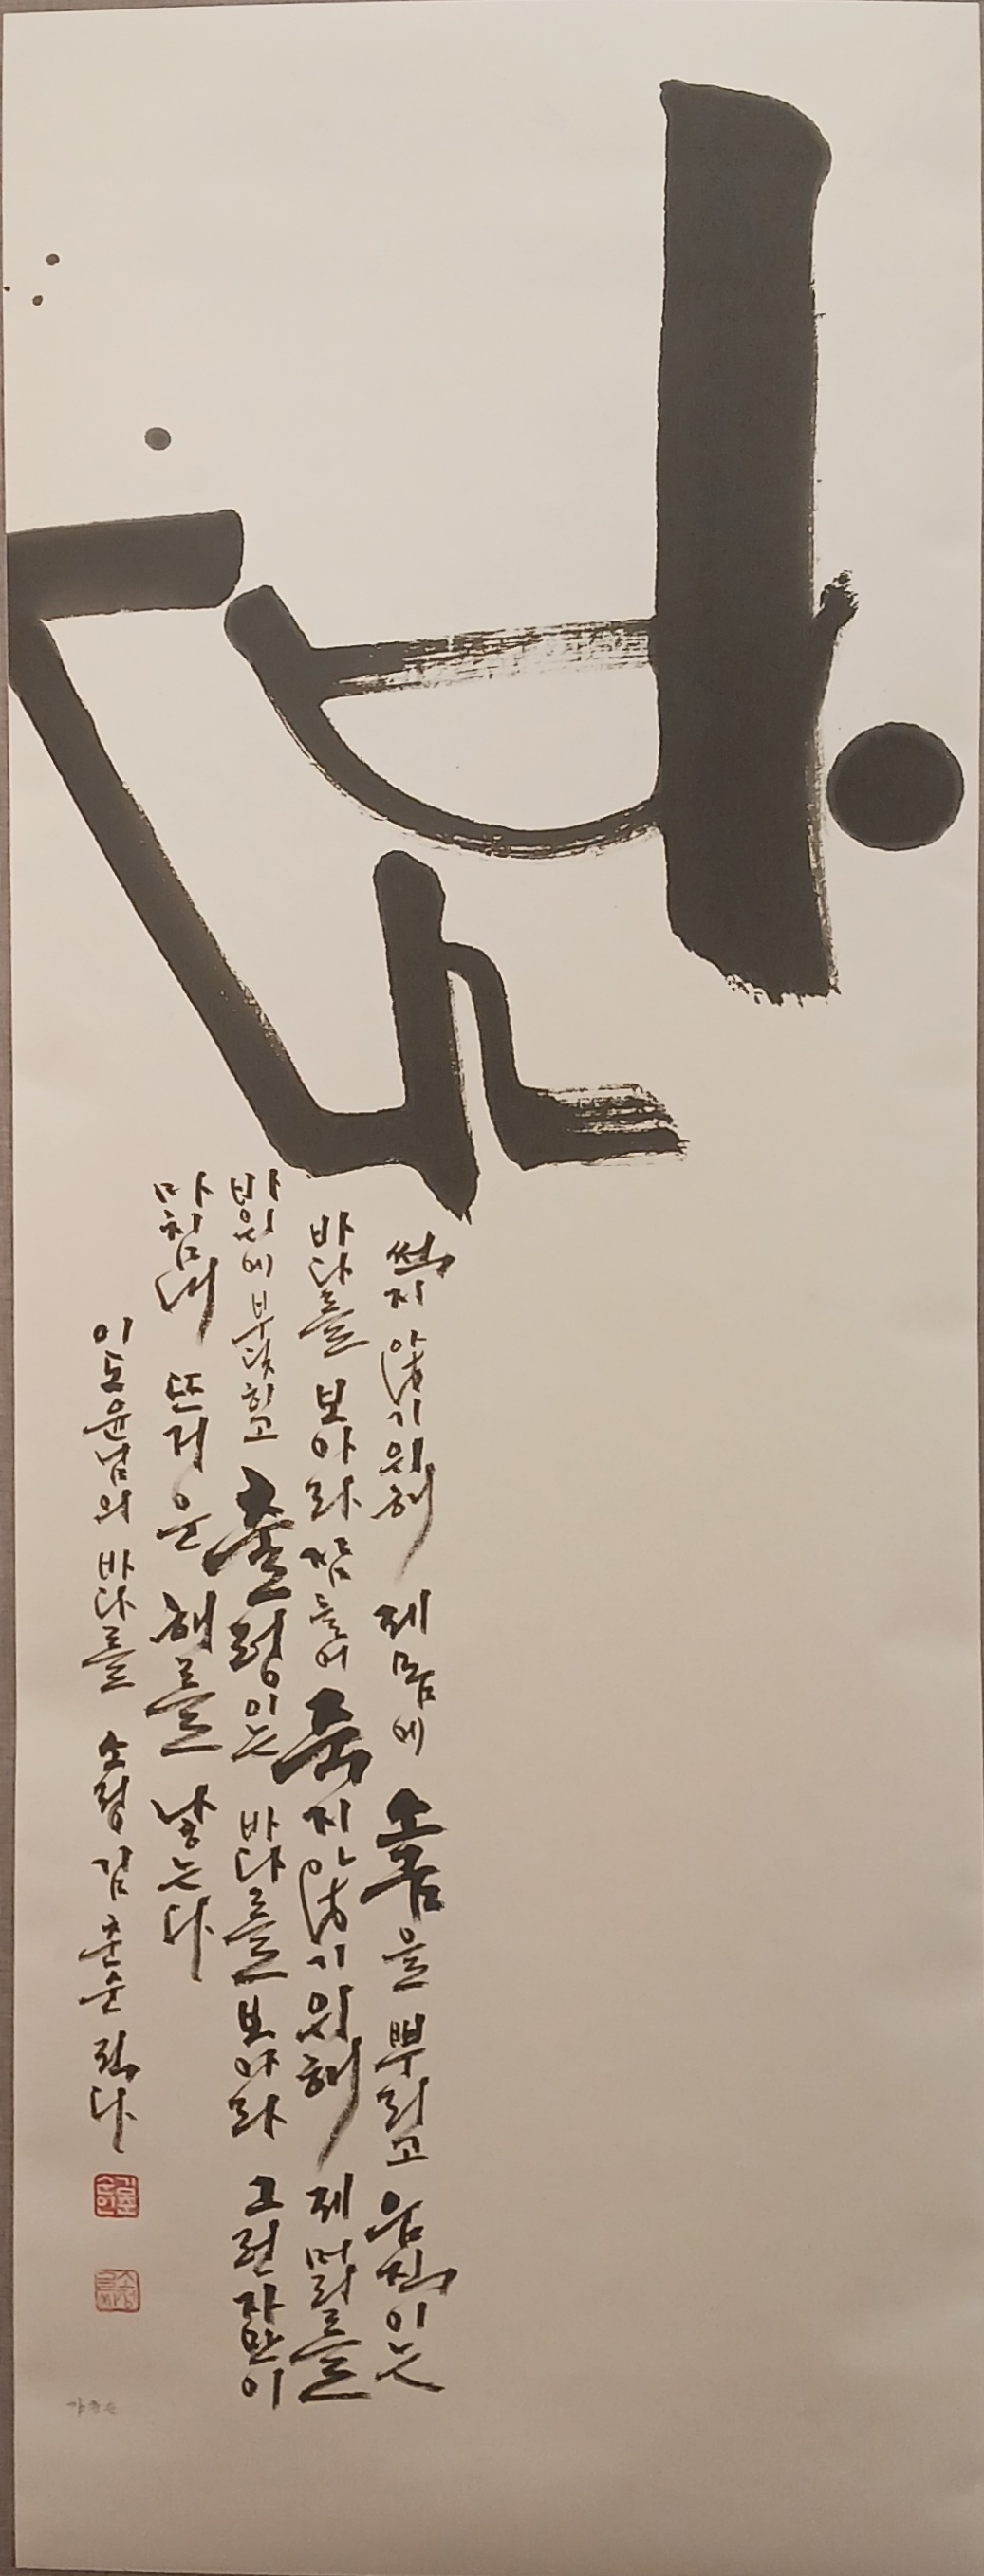 바다
썩지 않기 위해 제 몸에 소금을 뿌리고 움직이는
바다를 보아라 잠들어 죽지 않기 위해 제 머리를
바위에 부딪히고 출렁이는 바다를 보아라 그런 자만이
마침내 뜨거운 해를 낳는다
이도윤님의 바다를 소정 김춘순 적다